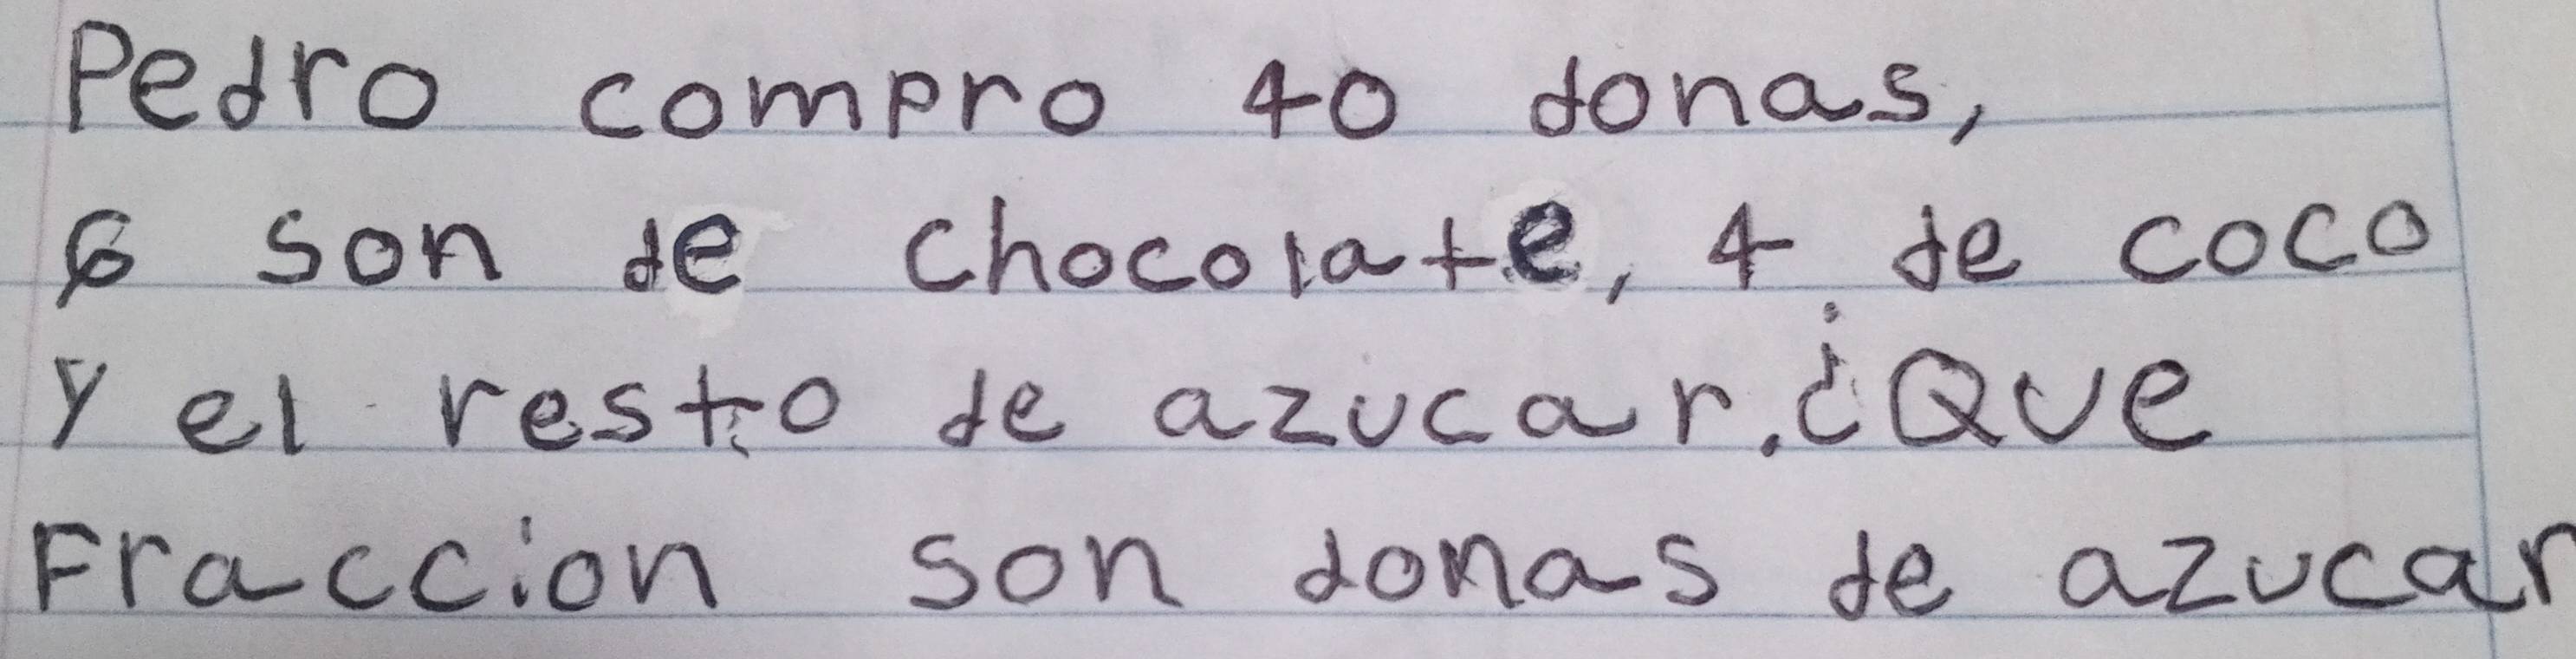 Pedro compro 40 donas,
6 son de chocolate, 4 de coco
y el resto de azucar. ¿Que
Fraccion son donas de azucar